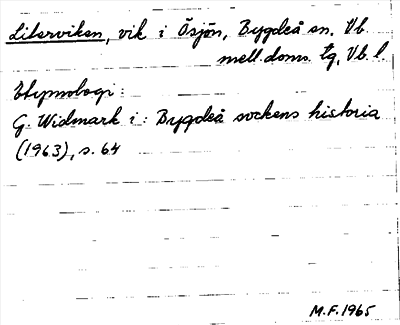 Literviken, vik i Ösjön, Bygdeå sn, Vb.
mell. doms. tg, Vb. l.
Etymologi:
G. Widmark i: Bygdeå sockens historia
(1963), s. 64
M.F. 1965